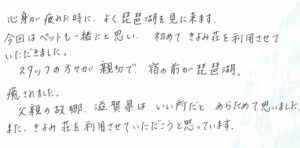 心身が疲れた時に、よく琵琶湖を見に来ます。
今回はペットも一緒にと思い、初めてきよみ荘を利用させて
いただきました。
スタッフの方々が親切で、宿の前が琵琶湖。
癒されました。
父親の故郷、滋賀県はいい所だとあらためて思いました
また、きよみ荘を利用させていただこうと思っています。